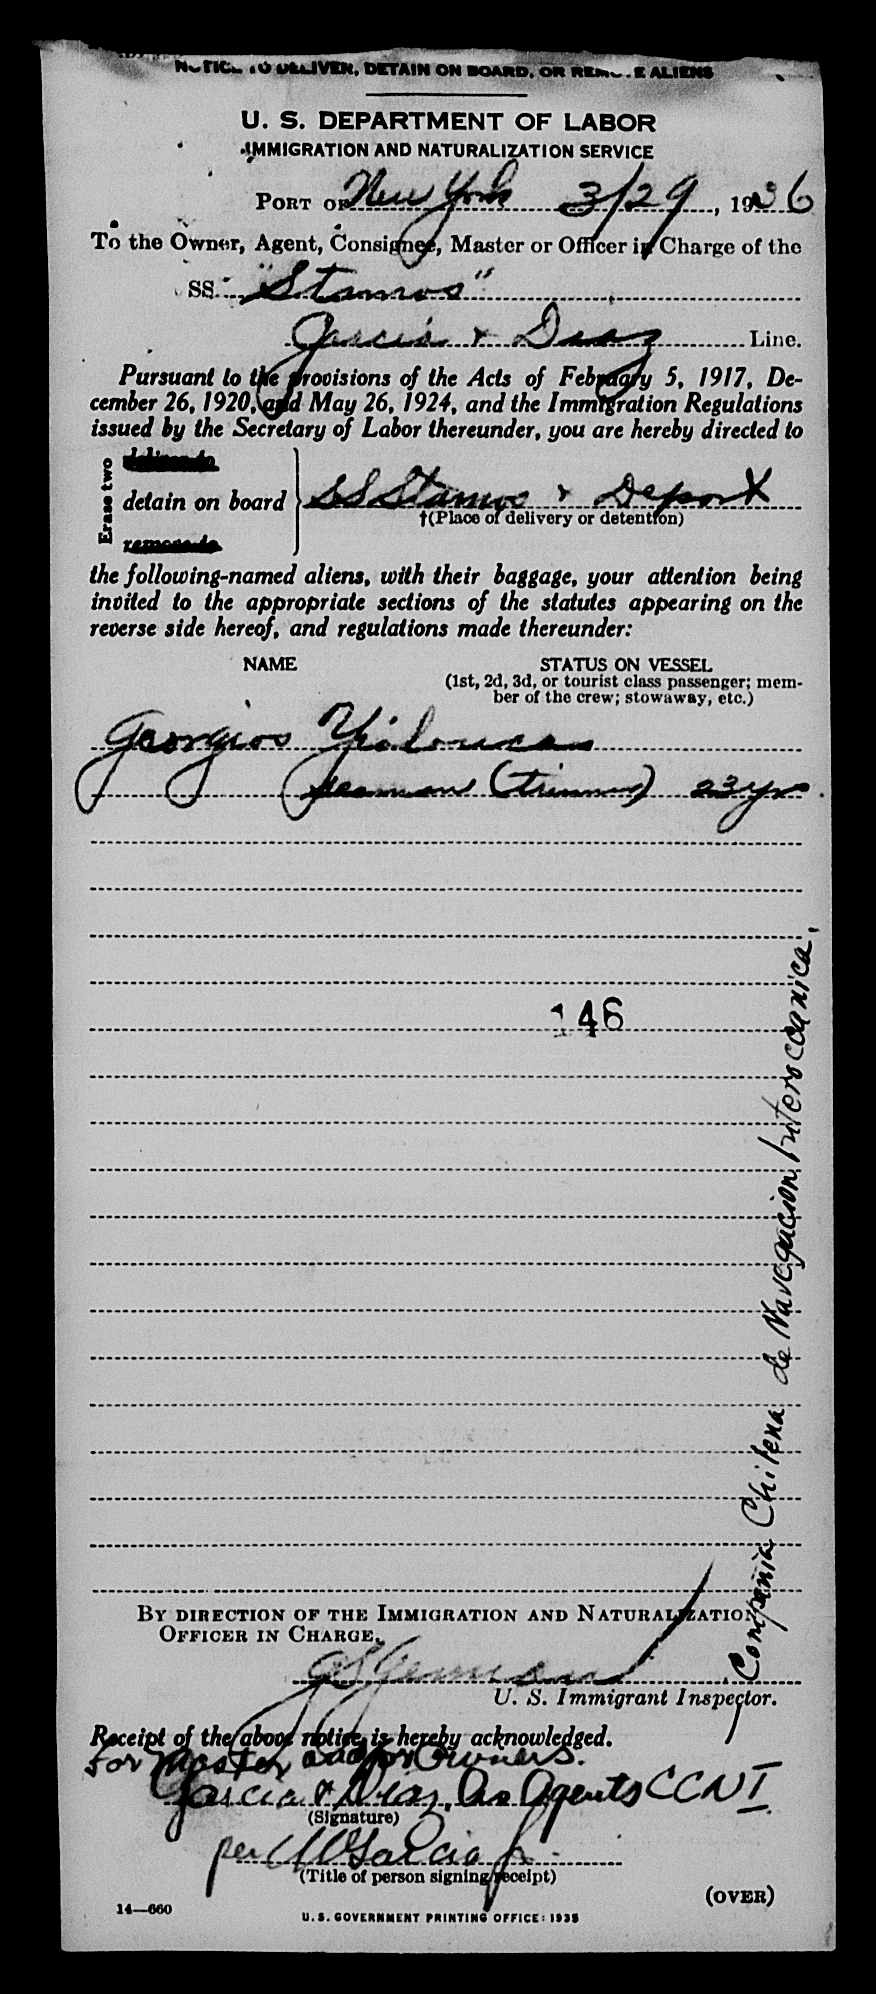 NOTICE TO DELIVER, DETAIN ON BOARD, OR REMOVE ALIENS
U. S. DEPARTMENT OF LABOR
IMMIGRATION AND NATURALIZATION SERVICE
PORT OF New York 3/29, 1936
To the Owner, Agent, Consignee, Master or Officer in Charge of the
SS. "Stamos"
Garcia & Diaz Line.
Pursuant to the provisions of the Acts of February 5, 1917, De-
cember 26, 1920, and May 26, 1924, and the Immigration Regulations
issued by the Secretary of Labor thereunder, you are hereby directed to
Erase two
deliver to
detain on board SS Stamos & Deport
†(Place of delivery or detention)
remove to
the following-named aliens, with their baggage, your attention being
invited to the appropriate sections of the statutes appearing on the
reverse side hereof, and regulations made thereunder:
NAME STATUS ON VESSEL
(1st, 2d, 3d, or tourist class passenger; mem-
ber of the crew; stowaway, etc.)
Georgios
seaman (trimmer) 23 yrs
146
Compania Chilena de Navegacion Interoceanica.
BY DIRECTION OF THE IMMIGRATION AND NATURALIZATION
OFFICER IN CHARGE.
U. S. Immigrant Inspector.
Receipt of the above notice is hereby acknowledged.
For Master and/or Owners.
Garcia & Diaz, As Agents CCNI
(Signature)
per Garcia Jr.
(Title of person signing receipt)
(OVER)
14—660
U. S. GOVERNMENT PRINTING OFFICE: 1935